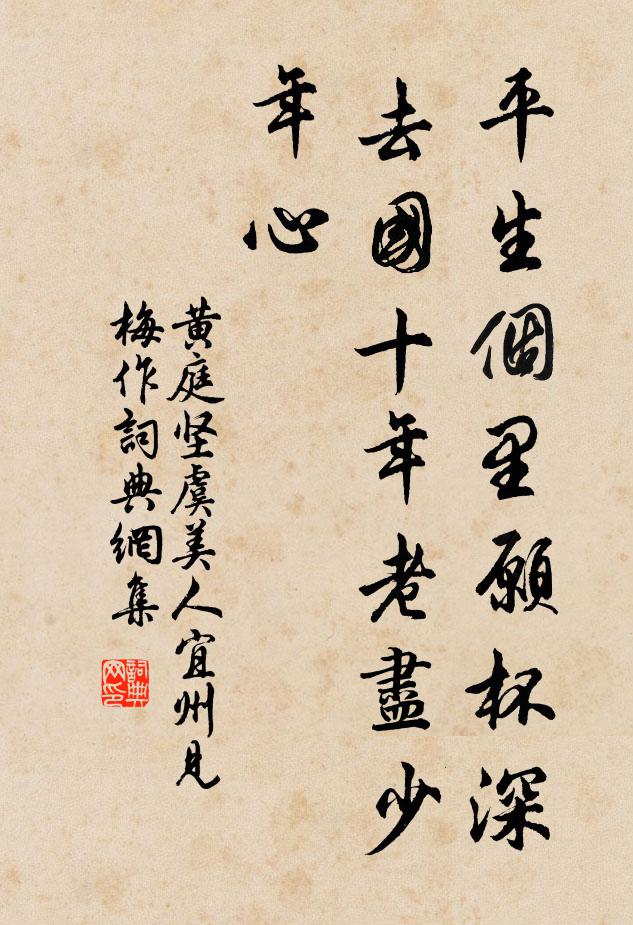 平生個里願杯深
去國十年老盡少
年心
黄庭坚虞美人宜州見
梅作詞典網集
詞典网印